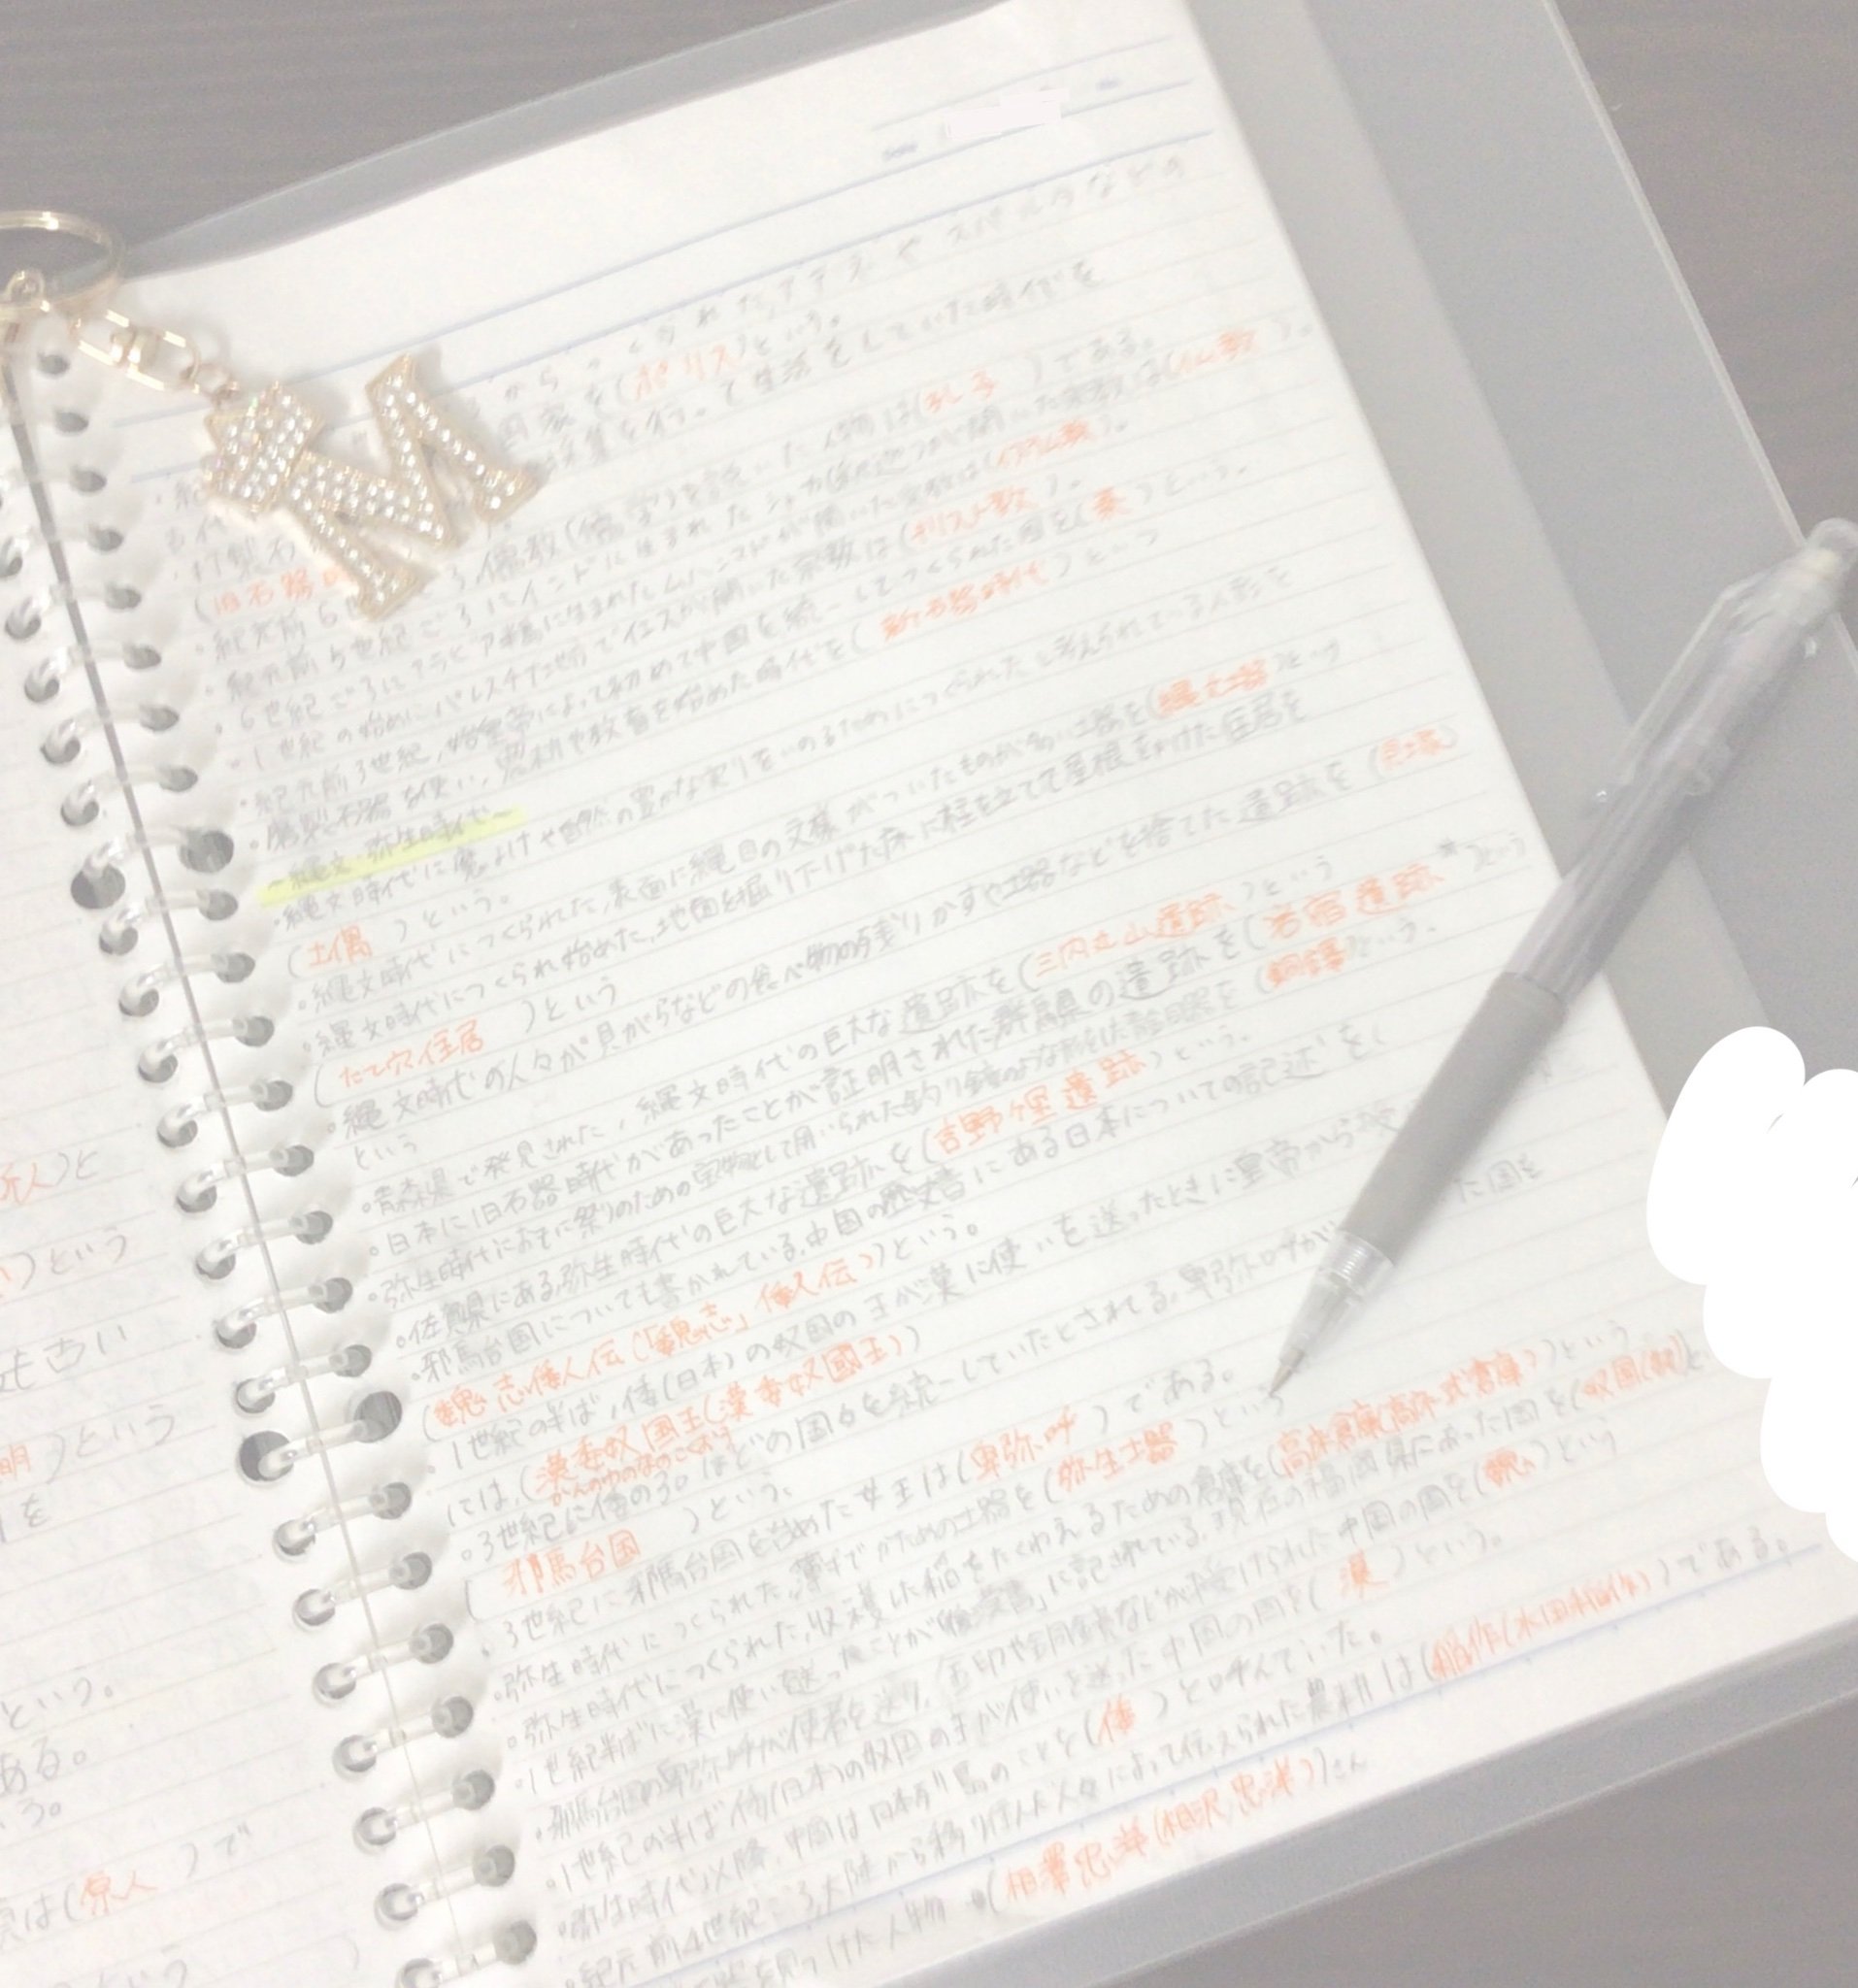 からつくられた,アテネやスパルタなどの
国家を(ポリス)という。
採集を行って生活をしていた時代を
(旧石器
儒教(儒学)を説いた人物は(孔子)である。
紀元前5世紀ごろにインドに生まれたシャカ(釈迦)が開いた宗教は(仏教)。
・6世紀ごろにアラビア半島に生まれたムハンマドが開いた宗教は(イスラム教)。
・1世紀の始めにパレスチナ地方でイエスが開いた宗教は(キリスト教)。
・紀元前3世紀,始皇帝によって初めて中国を統一してつくられた国を(秦)という。
・磨製石器を使い,農耕や牧畜を始めた時代を(新石器時代)という
~縄文・弥生時代~
・縄文時代に魔よけや自然の豊かな実りをいのるためにつくられたと考えられている人形を
(土偶)という。
・縄文時代につくられた,表面に縄目の文様がついたものが多い土器を(縄文土器)という
・縄文時代につくられ始めた,地面を掘り下げた床に柱を立てて屋根をかけた住居を
(たて穴住居)という
・縄文時代の人々が貝がらなどの食べ物の残りかすや土器などを捨てた遺跡を(貝塚)
という
・青森県で発見された,縄文時代の巨大な遺跡を(三内丸山遺跡)という
・日本に旧石器時代があったことが証明された群馬県の遺跡を(岩宿遺跡)という
・弥生時代におもに祭りのための宝物として用いられた釣り鐘のような形をした青銅器を(銅鐸)という。
・佐賀県にある,弥生時代の巨大な遺跡を(吉野ヶ里遺跡)という。
・邪馬台国についても書かれている,中国の歴史書にある日本についての記述を(
(魏志倭人伝(「魏志」倭人伝))という。
・1世紀の半ば,倭(日本)の奴国の王が漢に使いを送ったときに皇帝から授
には,(漢委奴国王(漢委奴國王))
かんのわのなのこくおう
・3世紀に倭の30ほどの国々を統一していたとされる,卑弥呼が
た国を
(邪馬台国)という。
・3世紀に邪馬台国を治めた女王は(卑弥呼)である。
・弥生時代につくられた,薄手でかための土器を(弥生土器)という
・弥生時代につくられた,収穫した稲をたくわえるための倉庫を(高床倉庫(高床式倉庫))という
・1世紀半ばに漢に使い送ったことが「後漢書」に記されている,現在の福岡県にあった国を(奴国
・邪馬台国の卑弥呼が使者を送り,金印や銅鏡などが授けられた中国の国を(魏)という
・1世紀の半ば倭(日本)の奴国の王が使いを送った中国の国を(漢)という。
・弥生時代以降,中国は日本列島のことを(倭)と呼んでいた。
・紀元前4世紀ごろ大陸から移り住んだ人々によって伝えられた農耕は(稲作(水田稲作))である。
を見つけた人物→(相澤忠洋(相沢忠洋))さん
人)と
)という
も古い
明)という
を
という。
ある。
る。
)で
は(原人
という